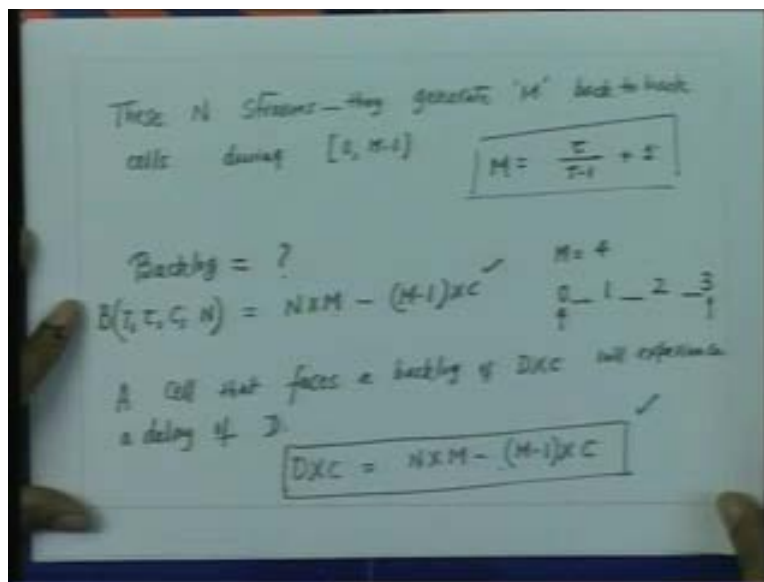 These N streams - they generate 'M' back to back
cells during [0, M-1]
M = τ/(T-1) + 1
Backlog = ?
M = 4
B(T, τ, C, N) = N×M - (M-1)×C ✓
0 _ 1 _ 2 _ 3
A cell that faces a backlog of D×C will experience
a delay of D.
D×C = N×M - (M-1)×C ✓